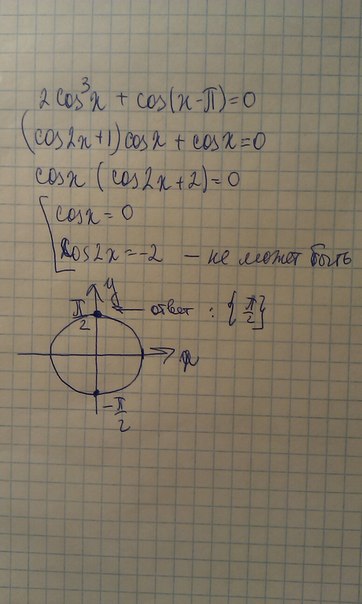 2cos³x + cos(x-π)=0
(cos2x+1)cosx + cosx=0
cosx (cos2x+2)=0
cosx=0
cos2x=-2 — не может быть
y
π/2
ответ : {π/2}
x
-π/2